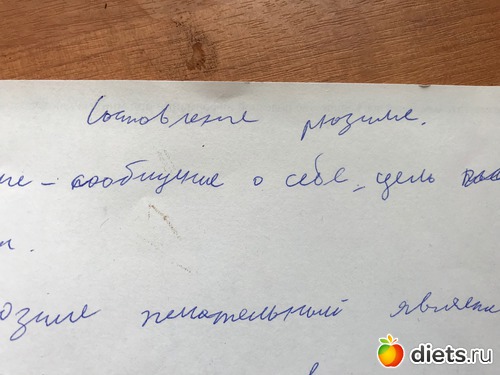 Состовление рюзиме.
ие - сообщение о себе, цель
юзиме желательный являе
diets.ru